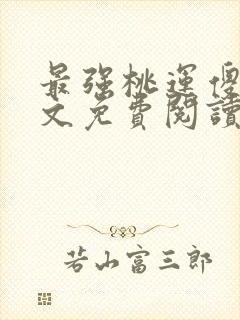 最强桃運傻
文免費閱讀
若山富三郎